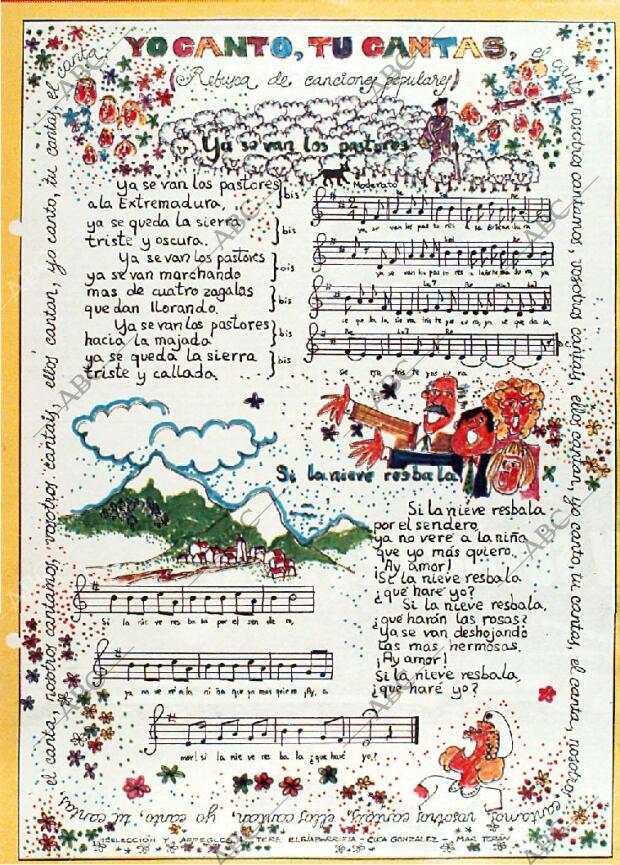 YO CANTO, TU CANTAS,
(Rebusca de canciones populares)
el canta, nosotros cantamos, vosotros cantais, ellos cantan, yo canto, tu cantas, el canta, nosotros cantamos, vosotros cantais, ellos cantan, yo canto, tu cantas,
el canta, nosotros cantamos, vosotros cantais, ellos cantan, yo canto, tu cantas, el canta
Ya se van los pastores
Ya se van los pastores
a la Extremadura,
bis
ya se queda la sierra
triste y oscura.
bis
Ya se van los pastores
ya se van marchando
bis
mas de cuatro zagalas
quedan llorando.
bis
Ya se van los pastores
hacia la majada
bis
ya se queda la sierra
triste y callada.
bis
Moderato
2
4
ya se van los pasto res a la Extrema du ra
Sol Re
ya se van los pasto res a la Extre ma du ra ya
La7 Re La7
se queda la sierra tris te y os cu ra, ya se que da la
Re La7 Re
sie rra tris te y os cu ra
D.C.
Si la nieve resbala
Si la nieve resbala
por el sendero,
ya no veré a la niña
que yo más quiero.
¡Ay amor!
Si la nieve resbala
¿qué haré yo?
Si la nieve resbala,
¿qué harán las rosas?
Ya se van deshojando
las mas hermosas.
¡Ay amor!
Si la nieve resbala,
¿qué haré yo?
Si la nie ve res ba la por el sen de ro,
ya no ve ré a la ni ña que yo mas quiero ¡Ay, a
mor! si la nie ve res ba la ¿que haré yo?
SELECCION Y ARREGLOS: TERE ELEJABARRIETA - CUCA GONZALEZ - MAR TERAN
ABC